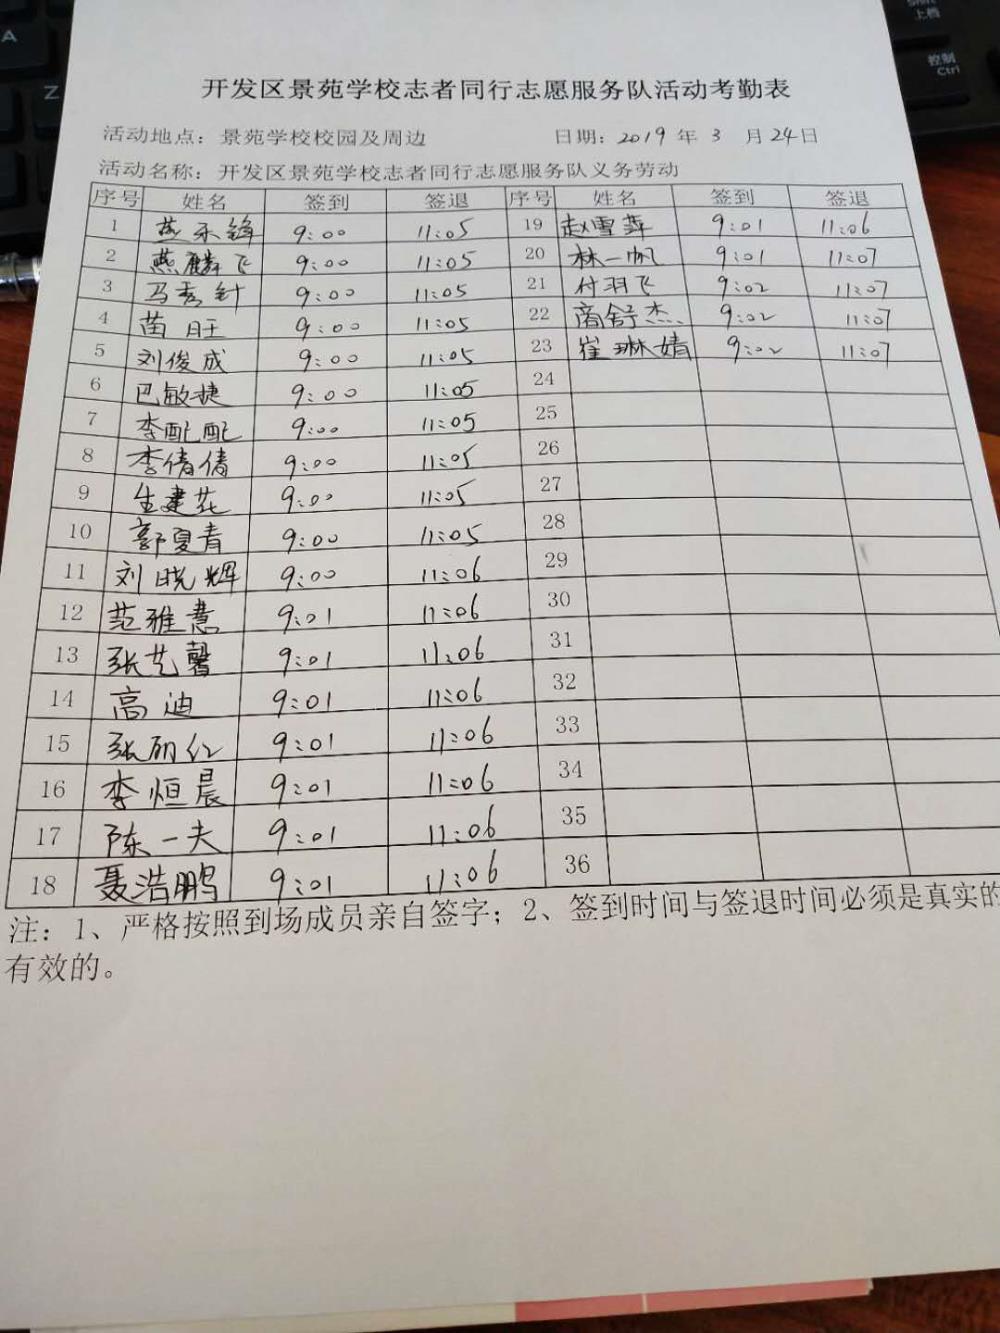 开发区景苑学校志者同行志愿服务队活动考勤表
活动地点：景苑学校校园及周边 日期：2019 年 3 月 24日
活动名称：开发区景苑学校志者同行志愿服务队义务劳动
序号 姓名 签到 签退 序号 姓名 签到 签退
1 9:00 11:05 19 赵雪萍 9:01 11:06
2 燕麟飞 9:00 11:05 20 林一帆 9:01 11:07
3 马秀针 9:00 11:05 21 付羽飞 9:02 11:07
4 苗旺 9:00 11:05 22 商舒杰 9:02 11:07
5 刘俊成 9:00 11:05 23 崔琳婧 9:02 11:07
6 巴敏捷 9:00 11:05 24
7 李配配 9:00 11:05 25
8 李倩倩 9:00 11:05 26
9 生建花 9:00 11:05 27
10 郭夏青 9:00 11:05 28
11 刘晓辉 9:00 11:06 29
12 范雅慧 9:01 11:06 30
13 张艺馨 9:01 11:06 31
14 高迪 9:01 11:06 32
15 张丽红 9:01 11:06 33
16 李恒晨 9:01 11:06 34
17 陈一夫 9:01 11:06 35
18 聂浩鹏 9:01 11:06 36
注：1、严格按照到场成员亲自签字；2、签到时间与签退时间必须是真实的
有效的。
A
Z
上档
控制
Ctrl